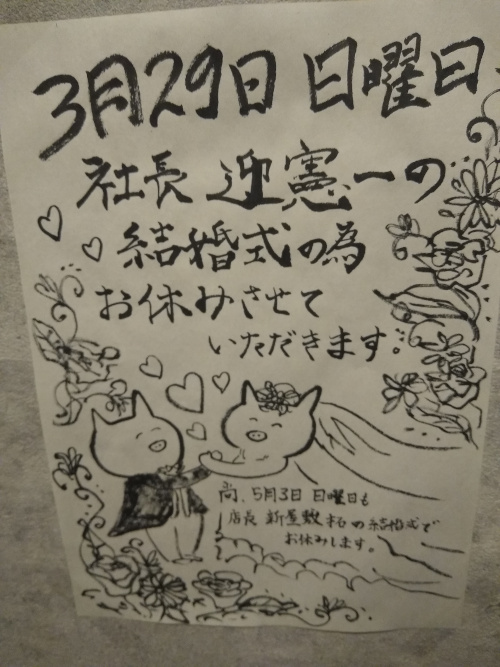 3月29日 日曜日
社長 迎憲一の
結婚式の為
お休みさせて
いただきます。
尚、5月3日 日曜日も
店長 新屋敷 の結婚式で
お休みします。